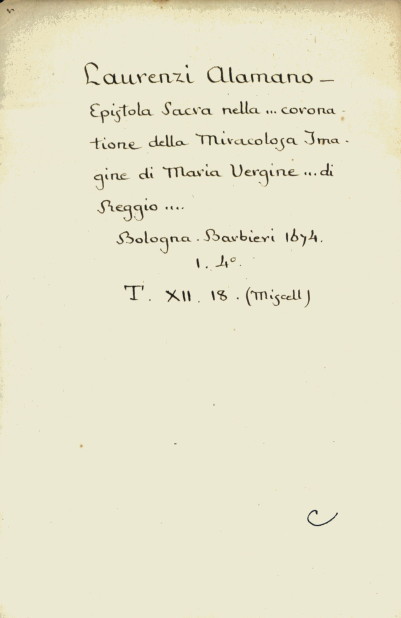 Laurenzi Alamano —
Epistola Sacra nella ... corona-
tione della Miracolosa Ima-
gine di Maria Vergine ... di
Reggio ....
Bologna. Barbieri 1674.
1. 4°.
T. XII. 18. (Miscell)
C